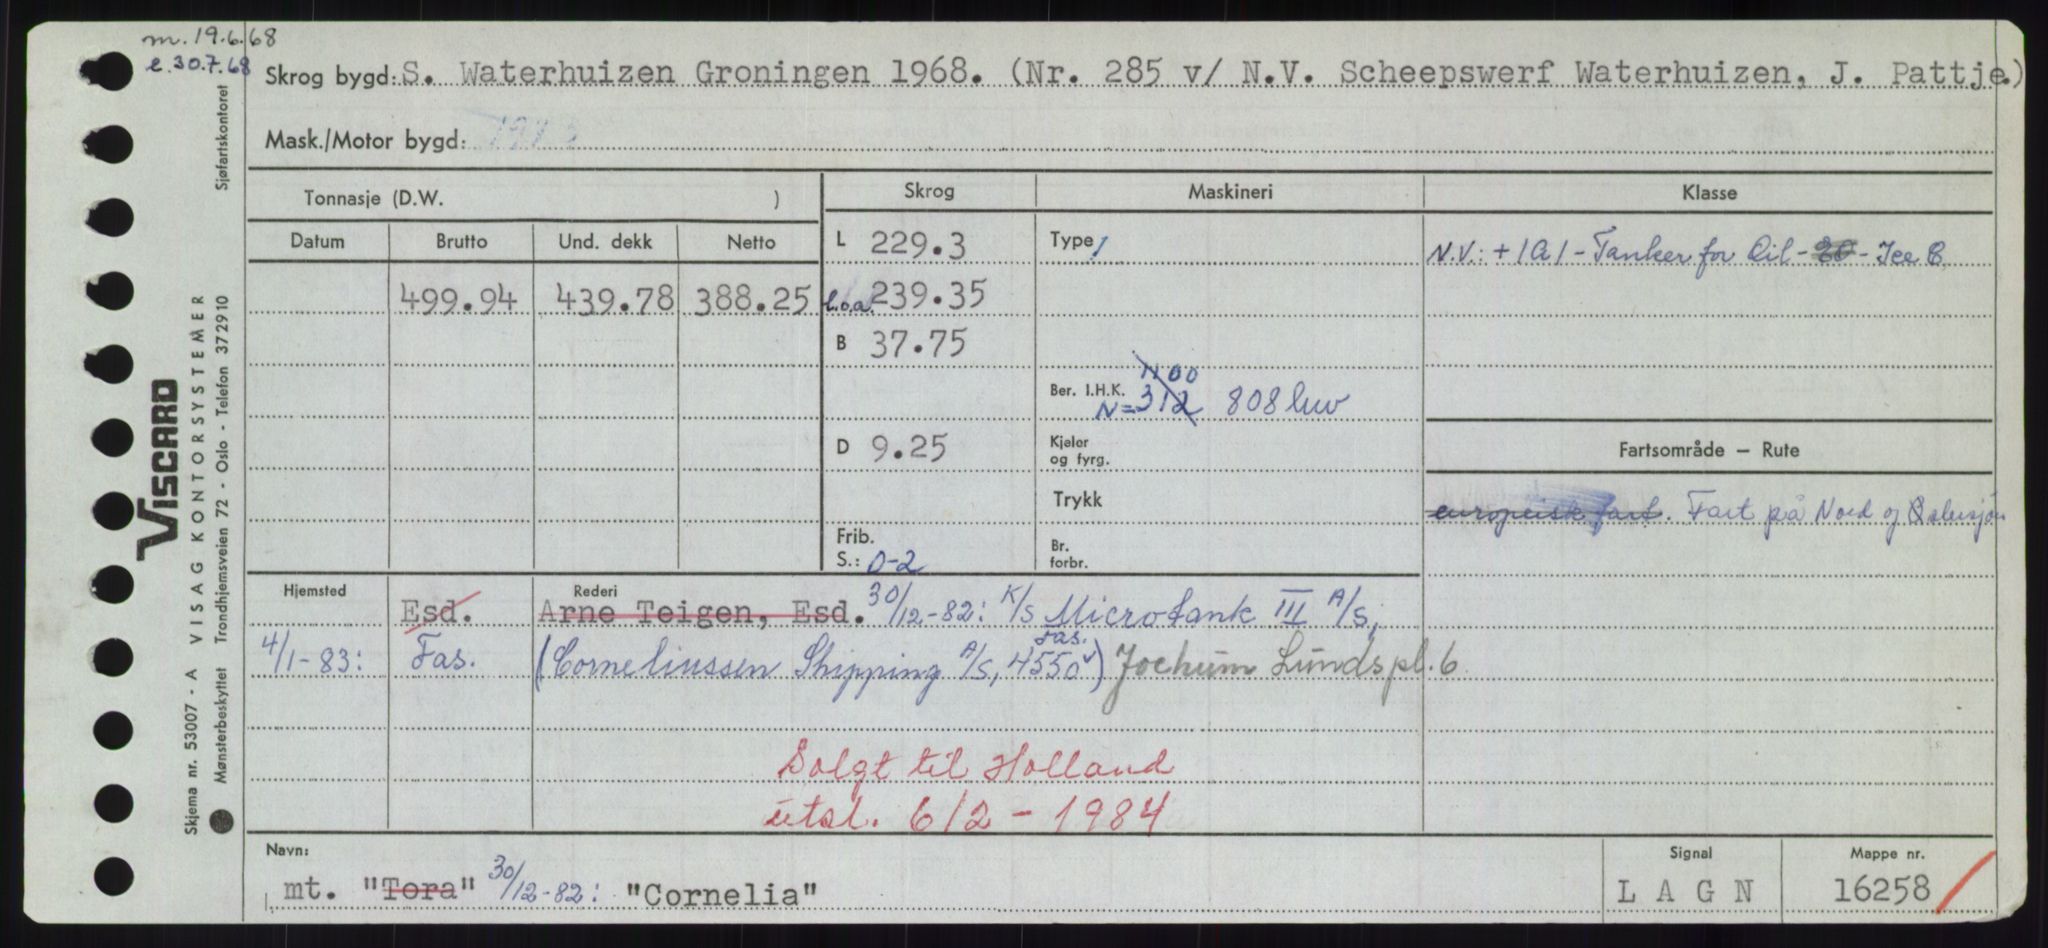 m. 19.6.68
e. 30.7.68
Skrog bygd: S. Waterhuizen Groningen 1968. (Nr. 285 v/ N.V. Scheepswerf Waterhuizen, J. Pattje.)
Mask./Motor bygd:
Tonnasje (D.W. )
Skrog
Maskineri
Klasse
Datum Brutto Und. dekk Netto
L 229.3
Type
N.V.: + 1A1 - Tanker for Oil - - Ice C
499.94 439.78 388.25
l.o.a. 239.35
B 37.75
1100
Ber. I.H.K. N=312 808 luv
D 9.25
Kjeler og fyrg.
Fartsområde — Rute
Trykk
europeisk fart. Fart på Nord og Østersjøen
Frib. S.: 0-2
Br. forbr.
Hjemsted
Rederi
Esd. Arne Teigen, Esd. 30/12-82: K/S Microtank III A/S,
4/1-83: Fas. (Corneliussen Shipping A/S, 4550 Fas.) Jochum Lunds pl. 6
Solgt til Holland
utsl. 6/2 - 1984
Navn: mt. "Tora" 30/12-82: "Cornelia"
Signal L A G N
Mappe nr. 16258
VISCARD
Skjema nr. 53007 - A VISAG KONTORSYSTEMER Sjøfartskontoret
Mønsterbeskyttet Trondhjemsveien 72 - Oslo - Telefon 372910